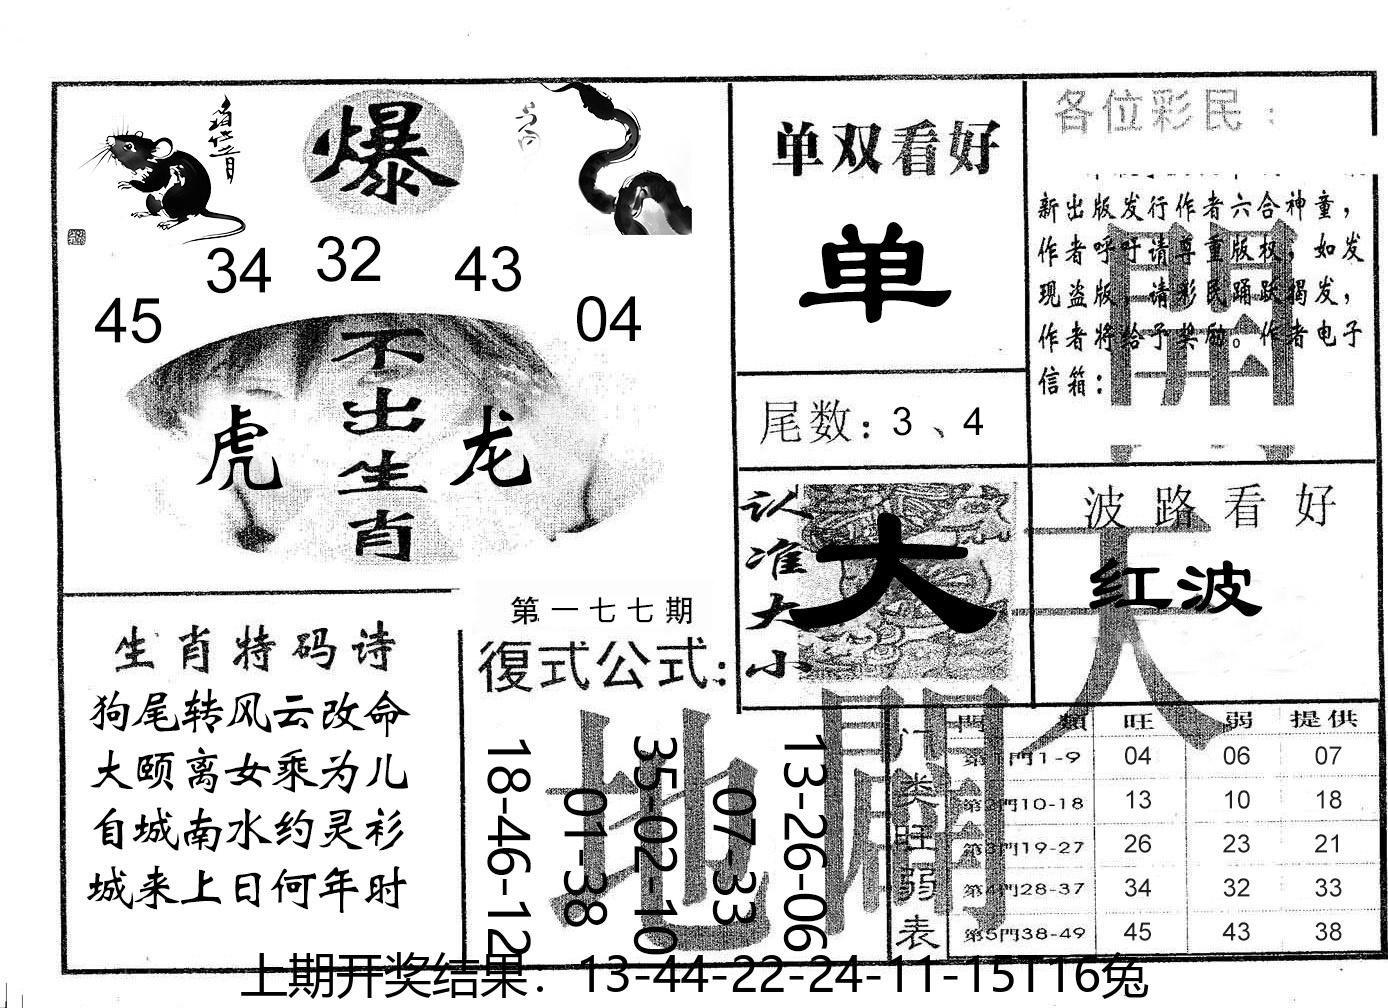 爆
34 32 43
45 04
不出生肖
虎 龙
单双看好
单
尾数：3、4
各位彩民：
新出版发行作者六合神童，
作者呼吁请尊重版权，如发
现盗版，请彩民踊跃揭发，
作者将给予奖励。作者电子
信箱：
認准大小
大
波路看好
红波
天
開
地
生肖特码诗
狗尾转风云改命
大颐离女乘为儿
自城南水约灵衫
城来上日何年时
第一七七期
復式公式：
18-46-12
01-38
35-02-10
07-33
13-26-06
门类旺弱表
門類 旺 弱 提供
第1門1-9 04 06 07
第2門10-18 13 10 18
第3門19-27 26 23 21
第4門28-37 34 32 33
第5門38-49 45 43 38
上期开奖结果：13-44-22-24-11-15T16兔